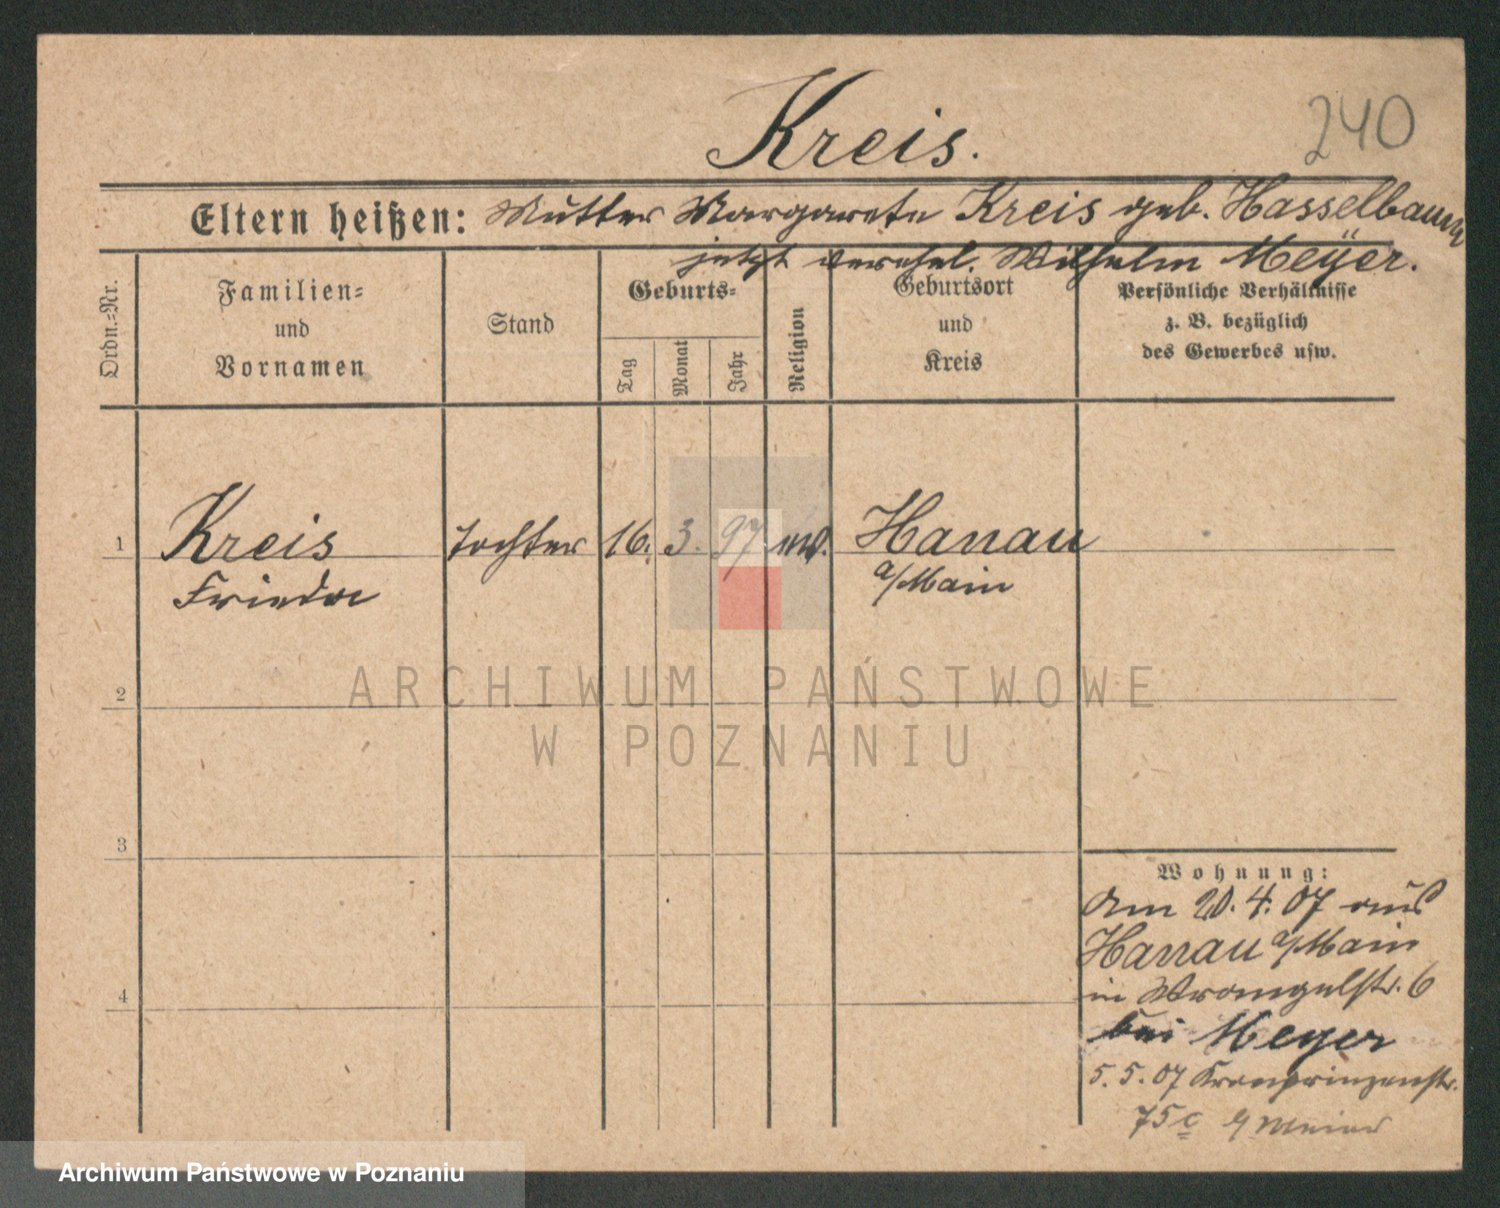 240
Kreis.
Eltern heißen: Mutter Margarete Kreis geb. Hasselbaum
jetzt verehel. Wilhelm Meÿer.
Ordn.=Nr.
Familien=
und
Vornamen
Stand
Geburts=
Tag
Monat
Jahr
Religion
Geburtsort
und
Kreis
Persönliche Verhältnisse
z. B. bezüglich
des Gewerbes usw.
1 Kreis Tochter 16. 3. 97. ev. Hanau
Frieda a/Main
2
3
4
Wohnung:
Am 20. 4. 07 aus
Hanau a/Main
in Wrangelstr. 6
bei Meyer
5. 5. 07 Kronprinzenstr.
75c
ARCHIWUM PAŃSTWOWE
W POZNANIU
Archiwum Państwowe w Poznaniu